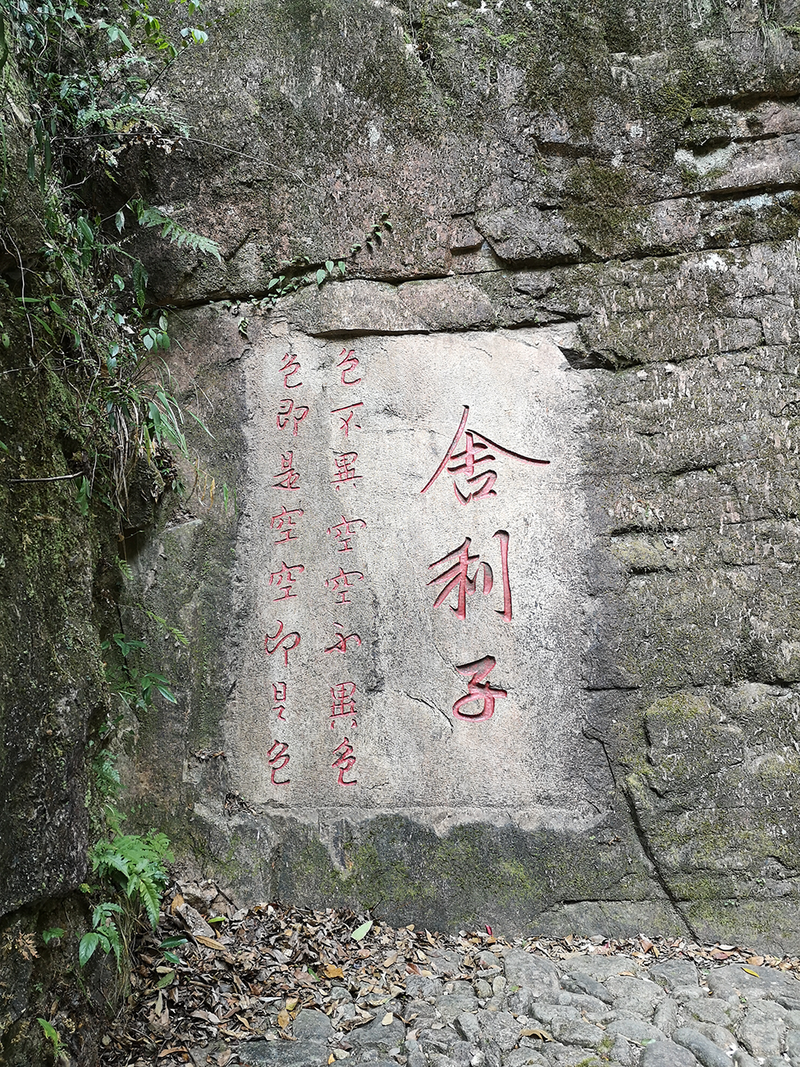 舍利子
色不異空空不異色
色即是空空即是色